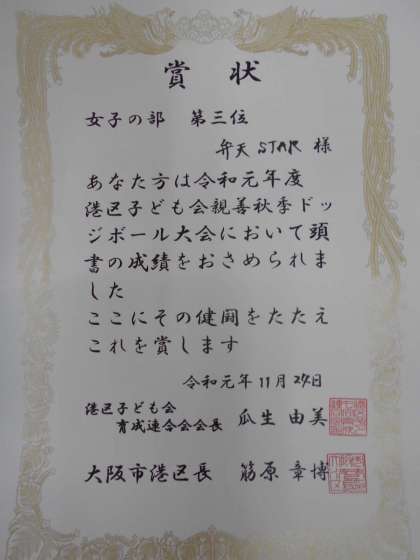 賞状
女子の部 第三位
弁天 STAR 様
あなた方は令和元年度
港区子ども会親善秋季ドッ
ジボール大会において頭
書の成績をおさめられま
した
ここにその健闘をたたえ
これを賞します
令和元年11月24日
港区子ども会
育成連合会会長 瓜生 由美
大阪市港区長 筋原 章博